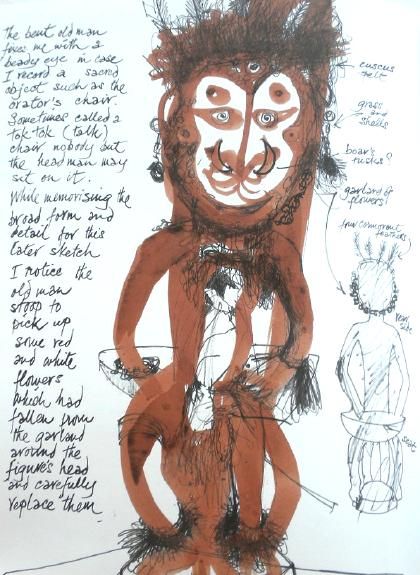 The bent old man
fixes me with a
beady eye in case
I record a sacred
object such as the
orator's chair.
Sometimes called a
tok tok (talk)
chair nobody but
the headman may
sit on it.
While memorising the
broad form and
detail for this
later sketch
I notice the
old man
stoop to
pick up
some red
and white
flowers
which had
fallen from
the garland
around the
figure's head
and carefully
replace them
cuscus
pelt
grass
and
shells
boar's
tusks?
garland of
flowers?
four cormorant
feathers
rear
side
seat